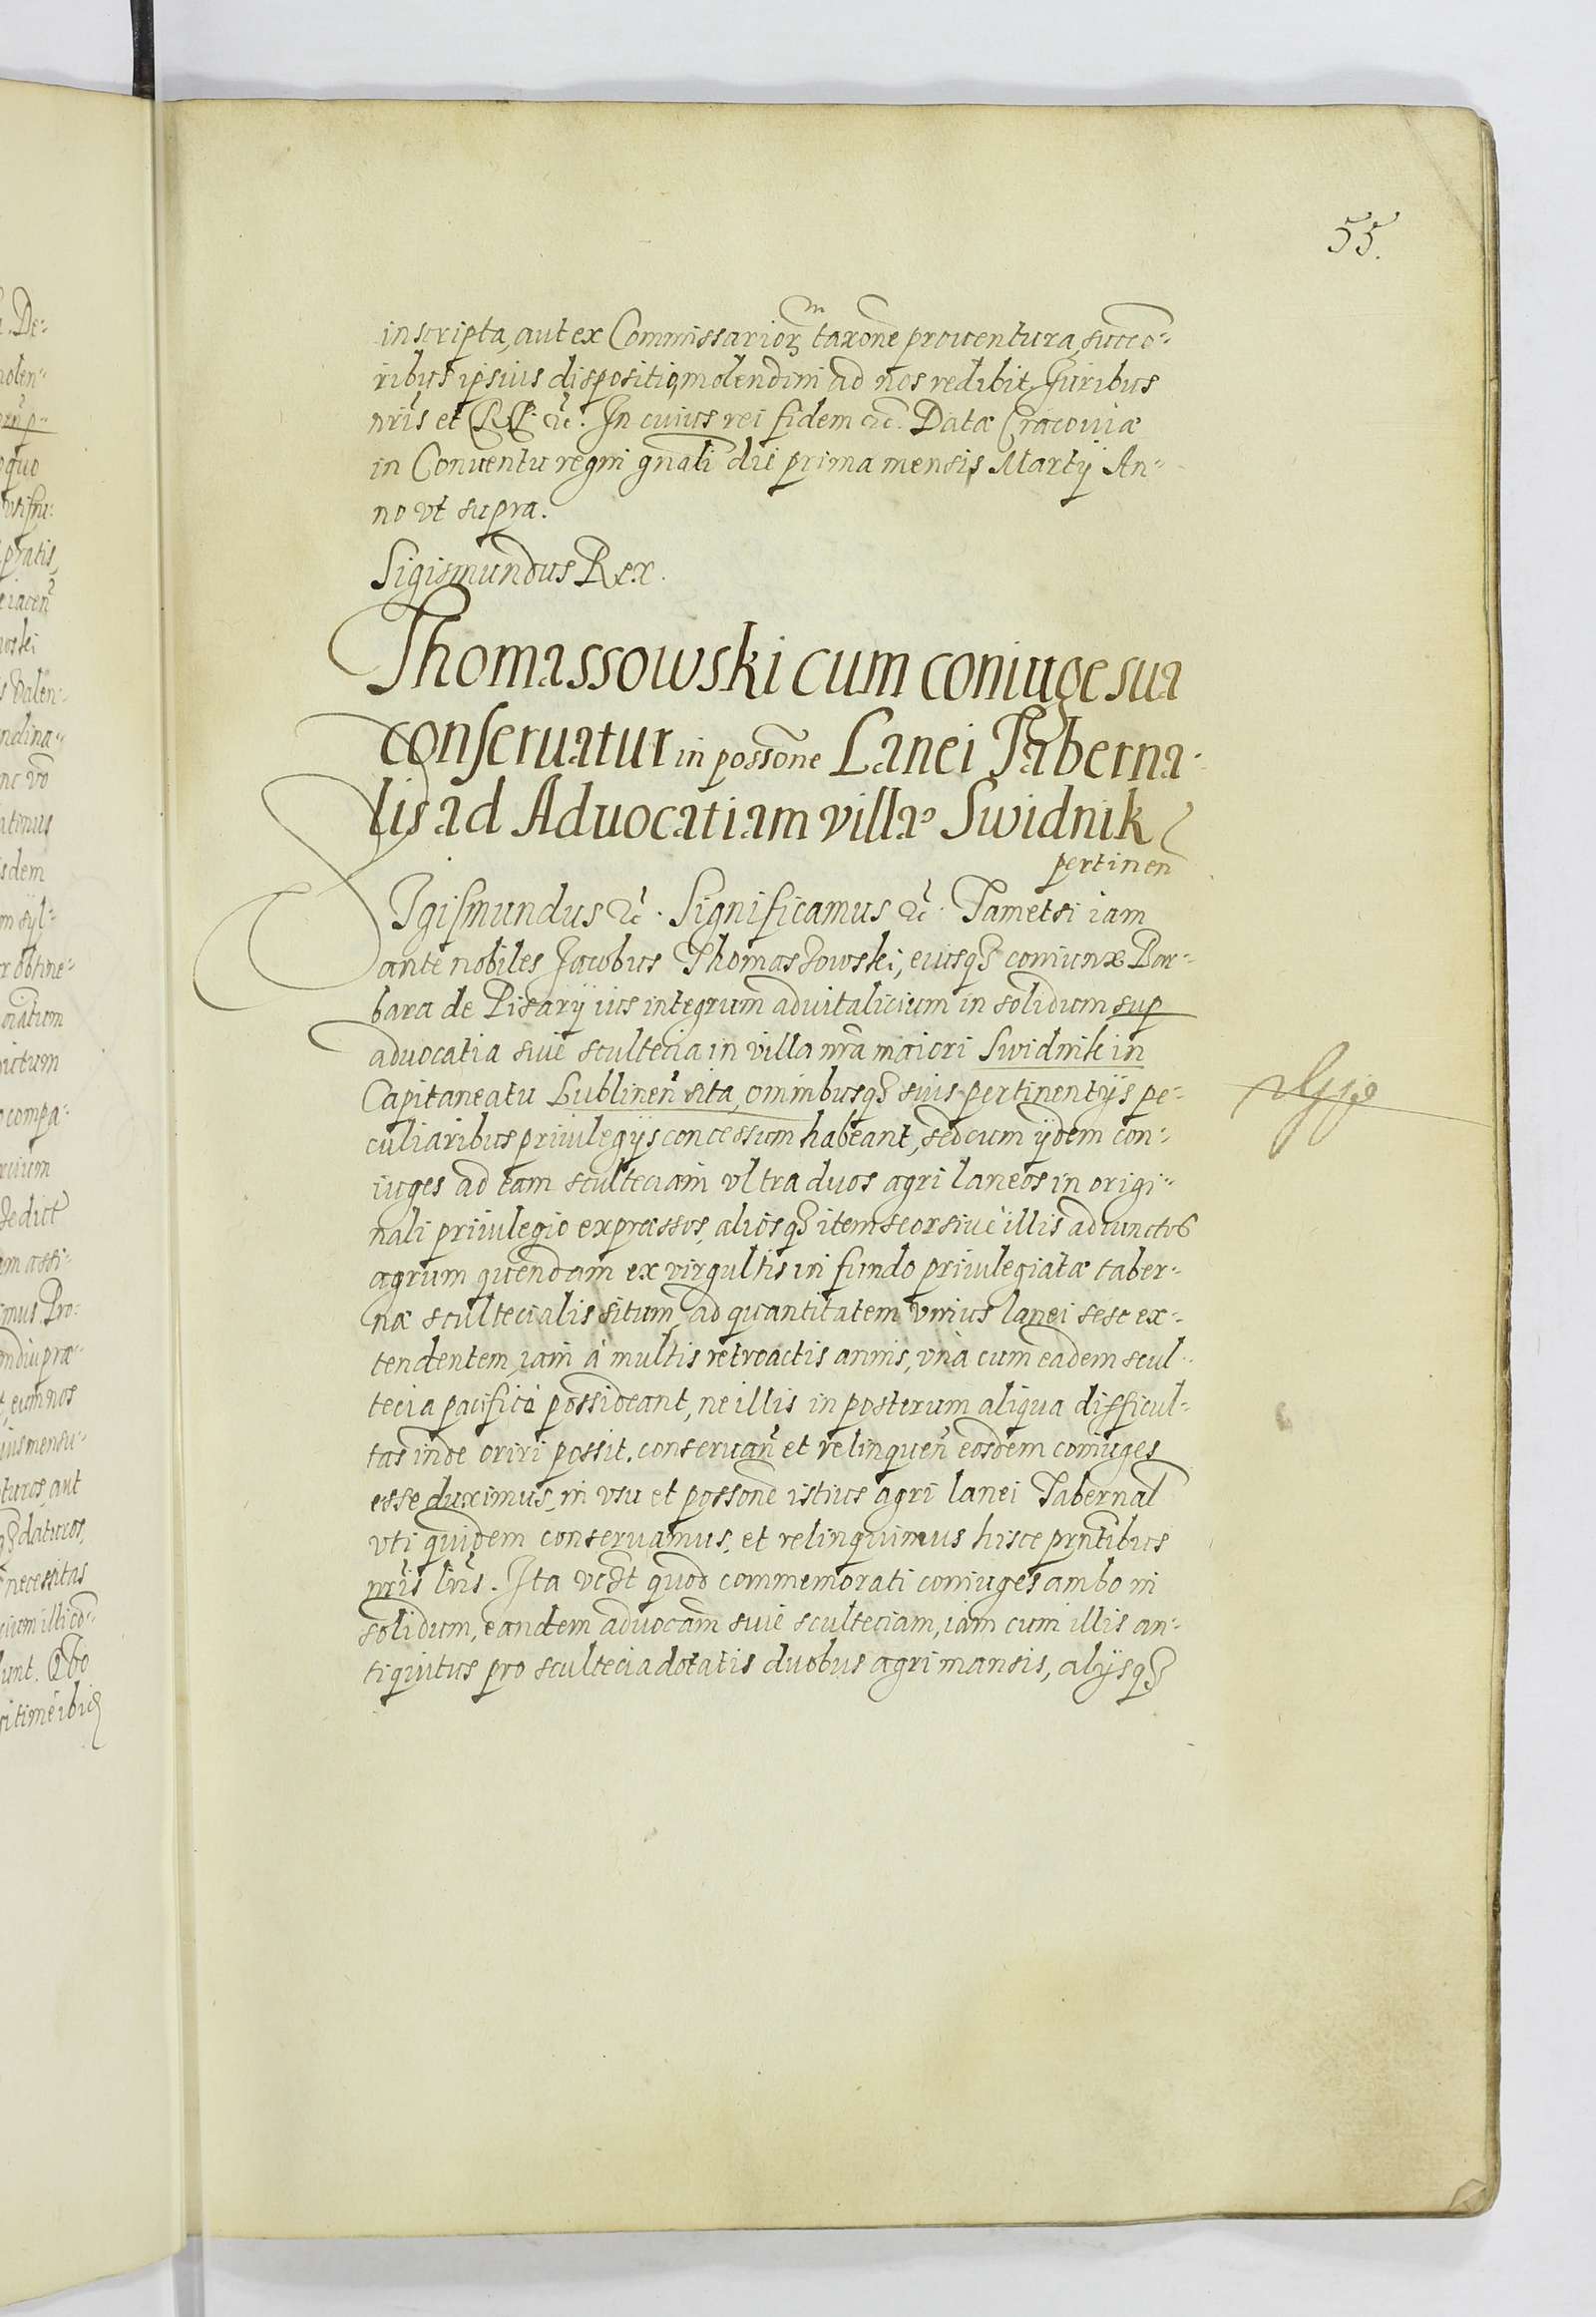 55.
inscripta, aut ex Commissarior̃ taxõne prouentura, succo-
ribus ipsius dispositio molendini ad nos redibit. Juribus
nr̃is et RP. &c̃. In cuius rei fidem &c̃. Datæ Cracouiæ
in Conuentu regni gñali die prima mensis Martij An-
no vt supra.
Sigismundus Rex.
Thomassowski cum coniuge sua
conseruatur in possõne Lanei Taberna-
lis ad Aduocatiam villæ Swidnik
pertineñ
Sigismundus &c̃. Significamus &c̃. Tametsi iam
ante nobiles Jacobus Thomaszowski, eiusq3 coniunx Bar-
bara de Pisary ius integrum aduitalicium in solidum sup
aduocatia siue scultecia in villa nr̃a maiori Swidnik in
Capitaneatu Lublineñ sita, omnibusq3 suis pertinentijs pe-
culiaribus priuilegijs concessum habeant, sed cum ijdem con-
iuges ad eam sculteciam vltra duos agri laneos in origi-
nali priuilegio expressos, aliosq3 item seorsiuè illis adiunctos
agrum quendam ex virgultis in fundo priuilegiatæ taber-
næ scultecialis situm, ad quantitatem vnius lanei sese ex-
tendentem, iam à multis retroactis annis, vnà cum eadem scul-
tecia pacificè possideant, ne illis in posterum aliqua difficul-
tas inde oriri possit. conseruañ et relinqueñ eosdem coniuges
esse duximus, in vsu et possõne istius agri lanei Tabernal̃
vti quidem conseruamus, et relinquimus hisce pr̃ntibus
nr̃is lr̃is. Ita vdlt quod commemorati coniuges ambo in
solidum, eandem aduocam̃ siue sculteciam, iam cum illis an-
tiquitus pro scultecia dotatis duobus agri mansis, alijsq3